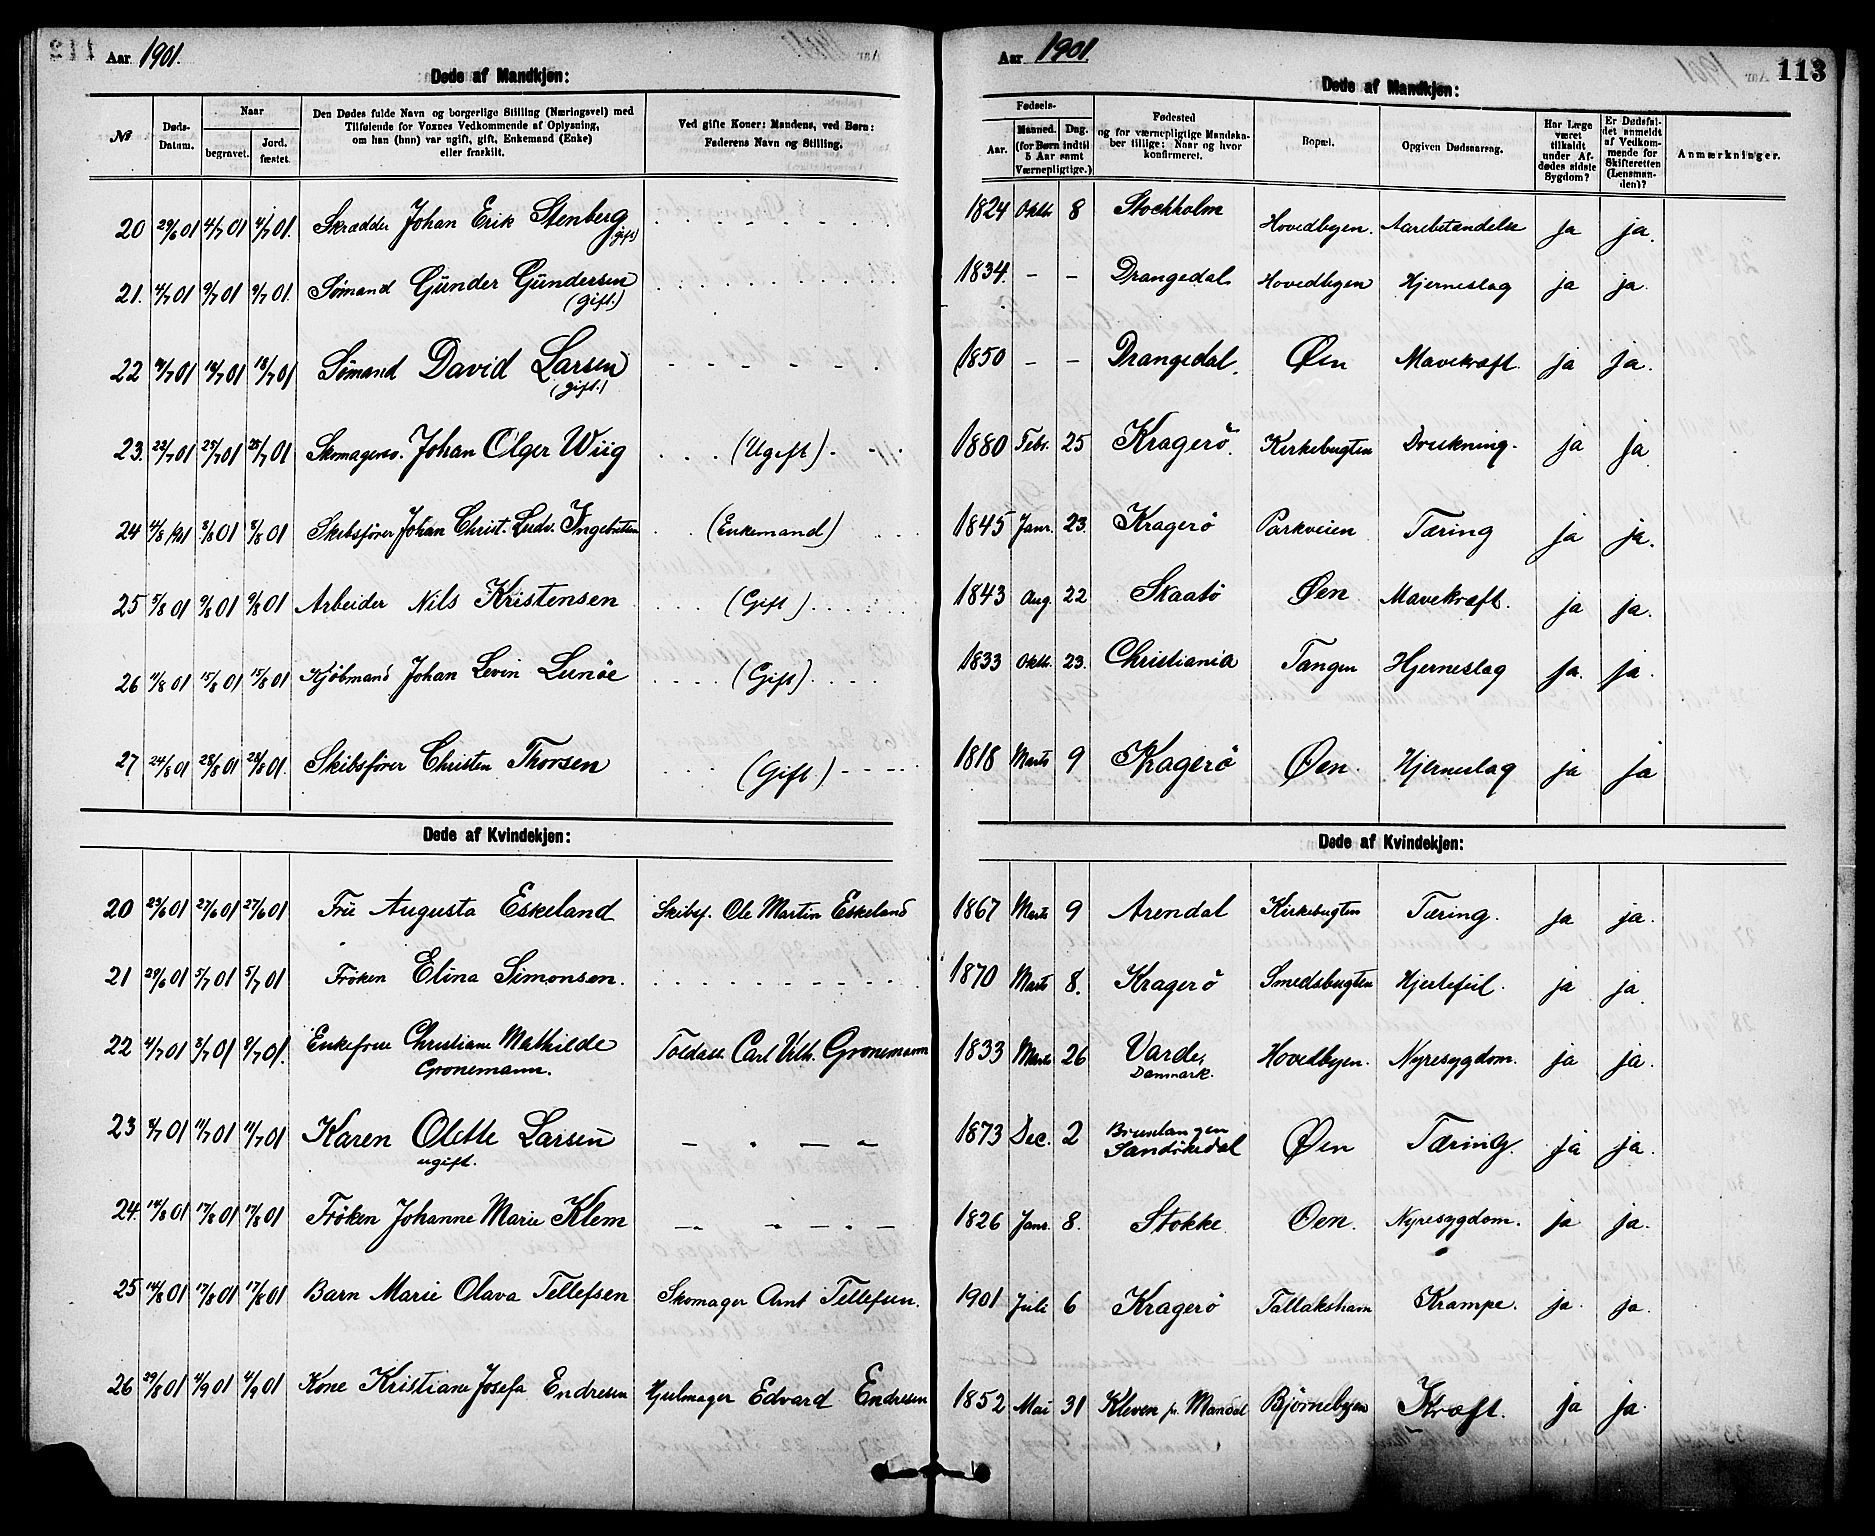 Aar 1901.
Døde af Mandkjøn:
№ | Døds-Datum. | Naar begravet. | Jord. fæstet. | Den Dødes fulde Navn og borgerlige Stilling (Næringsvei) med Tilføiende for Voxnes Vedkommende af Oplysning, om han (hun) var ugift, gift, Enkemand (Enke) eller fraskilt. | Ved gifte Koner: Mandens, ved Børn: Faderens Navn og Stilling.
20 | 29/6 01 | 4/7 01 | 4/7 01. | Skrædder Johan Erik Stenberg (gift)
21. | 4/7 01 | 9/7 01 | 9/7 01. | Sømand Gunder Gundersen (Gift.)
22 | /7 01 | /7 01 | 18/7 01 | Sømand David Larsen (gift.)
23. | 22/7 01 | 25/7 01 | 25/7 01 | Skomagersv. Johan Olger Wiig | (Ugift)
24 | /8 01 | 8/8 01 | 8/8 01 | Skibsfører Johan Christ. Ludv. Ingebretsen | (Enkemand)
25 | 5/8 01 | 9/8 01 | 9/8 01 | Arbeider Nils Kristensen | (Gift)
26 | 11/8 01 | 15/8 01 | 15/8 01 | Kjøbmand Johan Levin Lunøe | (Gift)
27 | 24/8 01 | 28/8 01 | 28/8 01. | Skibsfører Christen Thorsen | (Gift)
Døde af Kvindekjøn:
20 | 23/6 01 | 27/6 01 | 27/6 01 | Frue Augusta Eskeland | Skibsf. Ole Martin Eskeland
21 | 29/6 01 | 5/7 01 | 5/7 01 | Frøken Elina Simonsen.
22 | 4/7 01 | 8/7 01 | 9/7 01. | Enkefrue Christiane Mathilde Gronemann. | Toldass. Carl Vilh. Gronemann
23 | 8/7 01 | 11/7 01 | 11/7 01 | Karen Olette Larsen ugift. | — " — "
24. | 14/8 01 | 17/8 01 | 17/8 01 | Frøken Johanne Marie Klem | — " — " —
25 | 14/8 01 | 17/8 01 | 17/8 01 | Barn Marie Olava Tellefsen | Skomager Arnt Tellefsen.
26 | 29/8 01 | 4/9 01 | 4/9 01 | Kone Kristiane Josefa Endresen | Hjulmager Edvard Endresen
Aar 1901.
113
Døde af Mandkjøn:
Fødsels- Aar. | Maaned. | Dag. (for Børn indtil 5 Aar samt Værnepligtige.) | Fødested og for værnepligtige Mandskaber tillige: Naar og hvor konfirmeret. | Bopæl. | Opgiven Dødsaarsag. | Har Læge været tilkaldt under Afdødes sidste Sygdom? | Er Dødsfaldet anmeldt af Vedkommende for Skifteretten (Lensmanden)? | Anmærkninger.
1824 | Oktb. | 8 | Stockholm | Hovedbyen. | Aarebetændelse | ja | ja.
1834. | - | - | Drangedal | Hovedbyen | Hjerneslag | ja | ja.
1850 | - | - | Drangedal. | Øen | Mavekræft. | ja | ja.
1880 | Febr. | 25 | Kragerö. | Kirkebugten | Drukning. | ja | ja
1845 | Janr. | 23. | Kragerö | Parkveien | Tæring | ja | ja.
1843 | Aug. | 22 | Skaatö | Øen | Mavekræft. | ja | ja.
1833 | Oktb. | 23. | Christiania | Tangen | Hjerneslag | ja. | ja.
1818 | Marts | 9 | Kragerö | Øen. | Hjerneslag | ja | ja
Døde af Kvindekjøn:
1867 | Marts | 9 | Arendal | Kirkebugten | Tæring. | ja | ja.
1870 | Marts | 8. | Kragerö | Smedsbugten | Hjertefeil. | ja | ja
1833 | Marts | 26 | Varde, Danmark. | Hovedbyen. | Nyresygdom. | ja | ja.
1873 | Dec. | 2 | Sandökedal | Øen | Tæring. | ja | ja.
1826 | Janr. | 8. | Stokke | Øen. | Nyresygdom. | ja | ja.
1901 | Juli | 6 | Kragerö | Tallakshavn | Krampe. | ja. | ja.
1852 | Mai | 31 | Kleven pr. Mandal | Bjørnebyen | Kræft. | ja | ja.